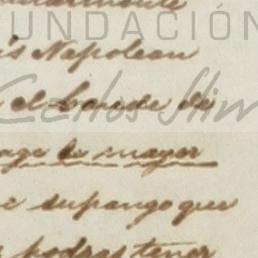 FUNDACIÓN
is Napoleon
el Conde de
Carlos Slim
age la mayor
e supongo que
podras tener